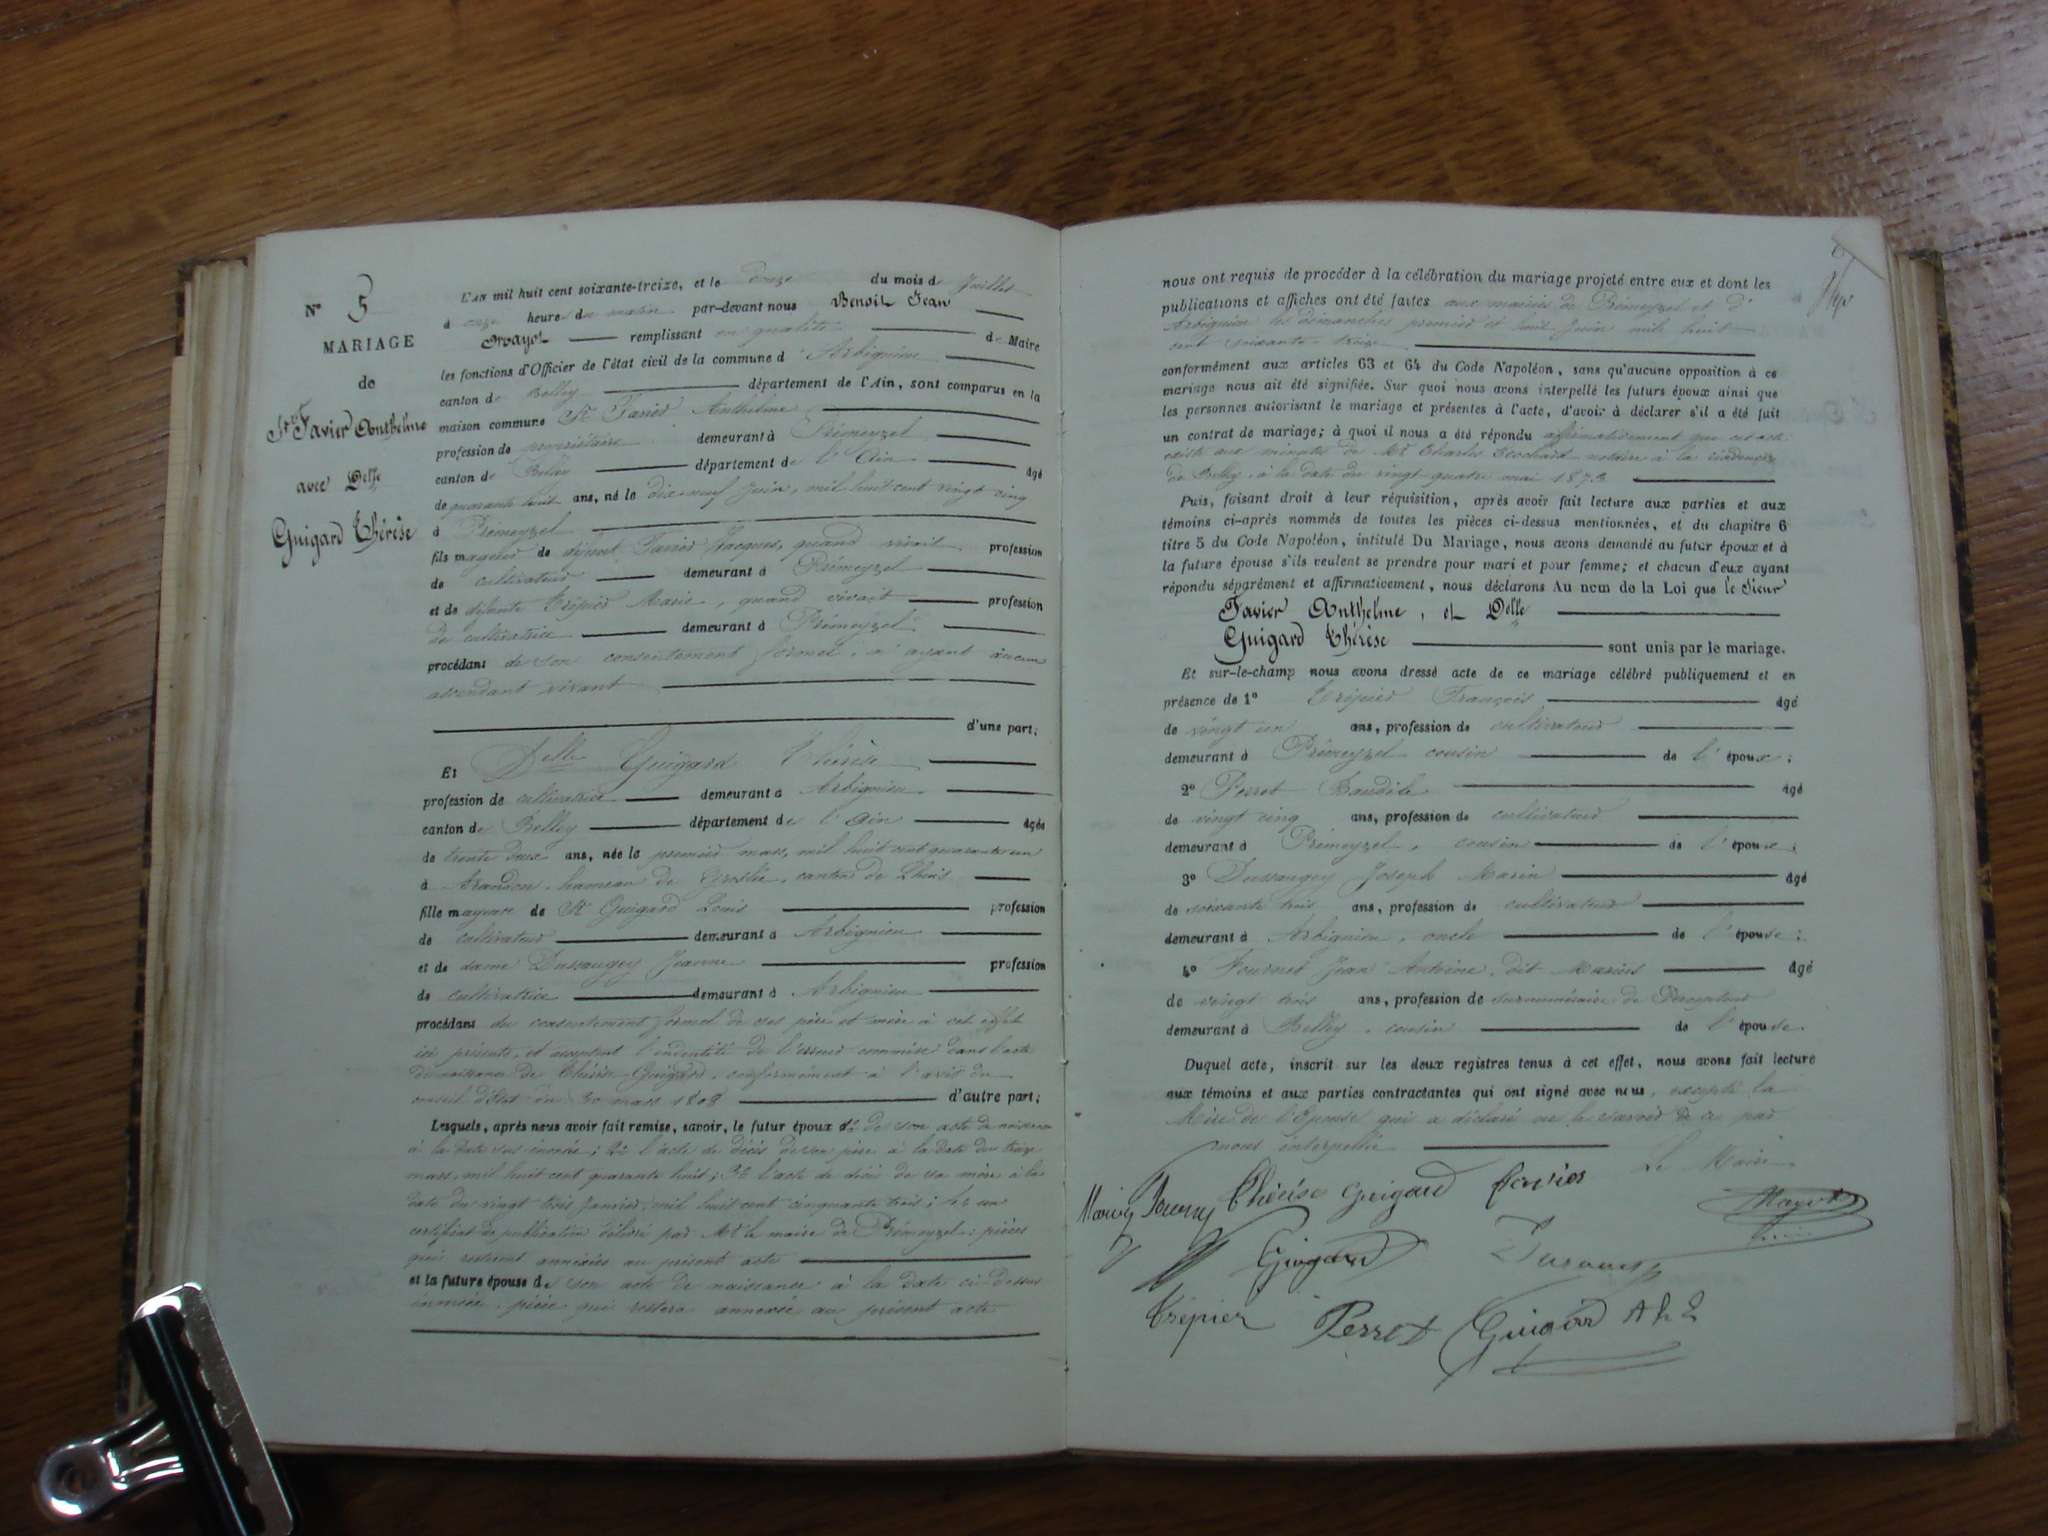 N° 5
MARIAGE
de
Sr Favier Anthelme
avec Delle
Guigard Thérèse
L'AN mil huit cent soixante-treize, et le onze du mois de Juillet
à onze heure du matin par-devant nous Benoit Jean
Mayot remplissant en qualité de Maire
les fonctions d'Officier de l'état civil de la commune d'Arbignieu
canton de Belley département de l'Ain, sont comparus en la
maison commune Sr Favier Anthelme
profession de propriétaire demeurant à Prémeyzel
canton de Belley département de l'Ain âgé
de quarante huit ans, né le dix-neuf Juin, mil huit cent vingt cinq
à Prémeyzel
fils mageur de défunt Favier Jacques, quand vivait profession
de cultivateur demeurant à Prémeyzel
et de défunte Trépier Marie, quand vivait profession
de cultivatrice demeurant à Prémeyzel
procédant de son consentement formel, n'ayant aucun
ascendant vivant
d'une part;
Et Delle Guigard Thérèse
profession de cultivatrice demeurant à Arbignieu
canton de Belley département de l'Ain âgée
de trente deux ans, née le premier mars, mil huit cent quarante un
à Arandon, hameau de Groslée, canton de Lhuis
fille mageure de Sr Guigard Louis profession
de cultivateur demeurant à Arbignieu
et de dame Dussaugey Jeanne profession
de cultivatrice demeurant à Arbignieu
procédant du consentement formel de ses père et mère à cet effet
ici présents, et acceptent l'indentité de l'erreur commise dans l'acte
de naissance de Thérèse Guigard, conformément à l'avis du
conseil d'Etat du 30 mars 1808 d'autre part;
Lesquels, après nous avoir fait remise, savoir, le futur époux 1° de son acte de naissance
à la date sus-énoncée; 2° l'acte de décès de son père à la date du treize
mars, mil huit cent quarante huit; 3° l'acte de décès de sa mère à la
date du vingt trois Janvier, mil huit cent cinquante trois; 4° un
certificat de publication délivré par Mr le maire de Prémeyzel; pièces
qui resteront annexées au présent acte
et la future épouse de son acte de naissance à la date ci-dessus
énoncée, pièce qui restera annexée au présent acte
nous ont requis de procéder à la célébration du mariage projeté entre eux et dont les
publications et affiches ont été faites aux mairies de Prémeyzel et d'
Arbignieu les dimanches premier et huit Juin mil huit
cent soixante-treize
conformément aux articles 63 et 64 du Code Napoléon, sans qu'aucune opposition à ce
mariage nous ait été signifiée. Sur quoi nous avons interpellé les futurs époux ainsi que
les personnes autorisant le mariage et présentes à l'acte, d'avoir à déclarer s'il a été fait
un contrat de mariage; à quoi il nous a été répondu affirmativement que cet acte
existe aux minutes de Me Charles notaire à la résidence
de Belley, à la date du vingt quatre mai 1873
Puis, faisant droit à leur réquisition, après avoir fait lecture aux parties et aux
témoins ci-après nommés de toutes les pièces ci-dessus mentionnées, et du chapitre 6
titre 5 du Code Napoléon, intitulé Du Mariage, nous avons demandé au futur époux et à
la future épouse s'ils veulent se prendre pour mari et pour femme; et chacun d'eux ayant
répondu séparément et affirmativement, nous déclarons Au nom de la Loi que le Sieur
Favier Anthelme, et Delle
Guigard Thérèse sont unis par le mariage.
Et sur-le-champ nous avons dressé acte de ce mariage célébré publiquement et en
présence de 1° Trépier François âgé
de vingt un ans, profession de cultivateur
demeurant à Prémeyzel cousin de l'époux;
2° Perret Baudile âgé
de vingt cinq ans, profession de cultivateur
demeurant à Prémeyzel, cousin de l'épouse;
3° Dussaugey Joseph Marin âgé
de soixante trois ans, profession de cultivateur
demeurant à Arbignieu, oncle de l'épouse;
4° Fournet Jean Antoine, dit Marius âgé
de vingt trois ans, profession de surnuméraire de Percepteur
demeurant à Belley, cousin de l'épouse.
Duquel acte, inscrit sur les deux registres tenus à cet effet, nous avons fait lecture
aux témoins et aux parties contractantes qui ont signé avec nous, excepté la
Mère de l'Epouse qui a déclaré ne le savoir de ce par
nous interpellée
Le Maire
Thérèse Guigard Favier Mayot
Guigard
Trépier Perret Guigard